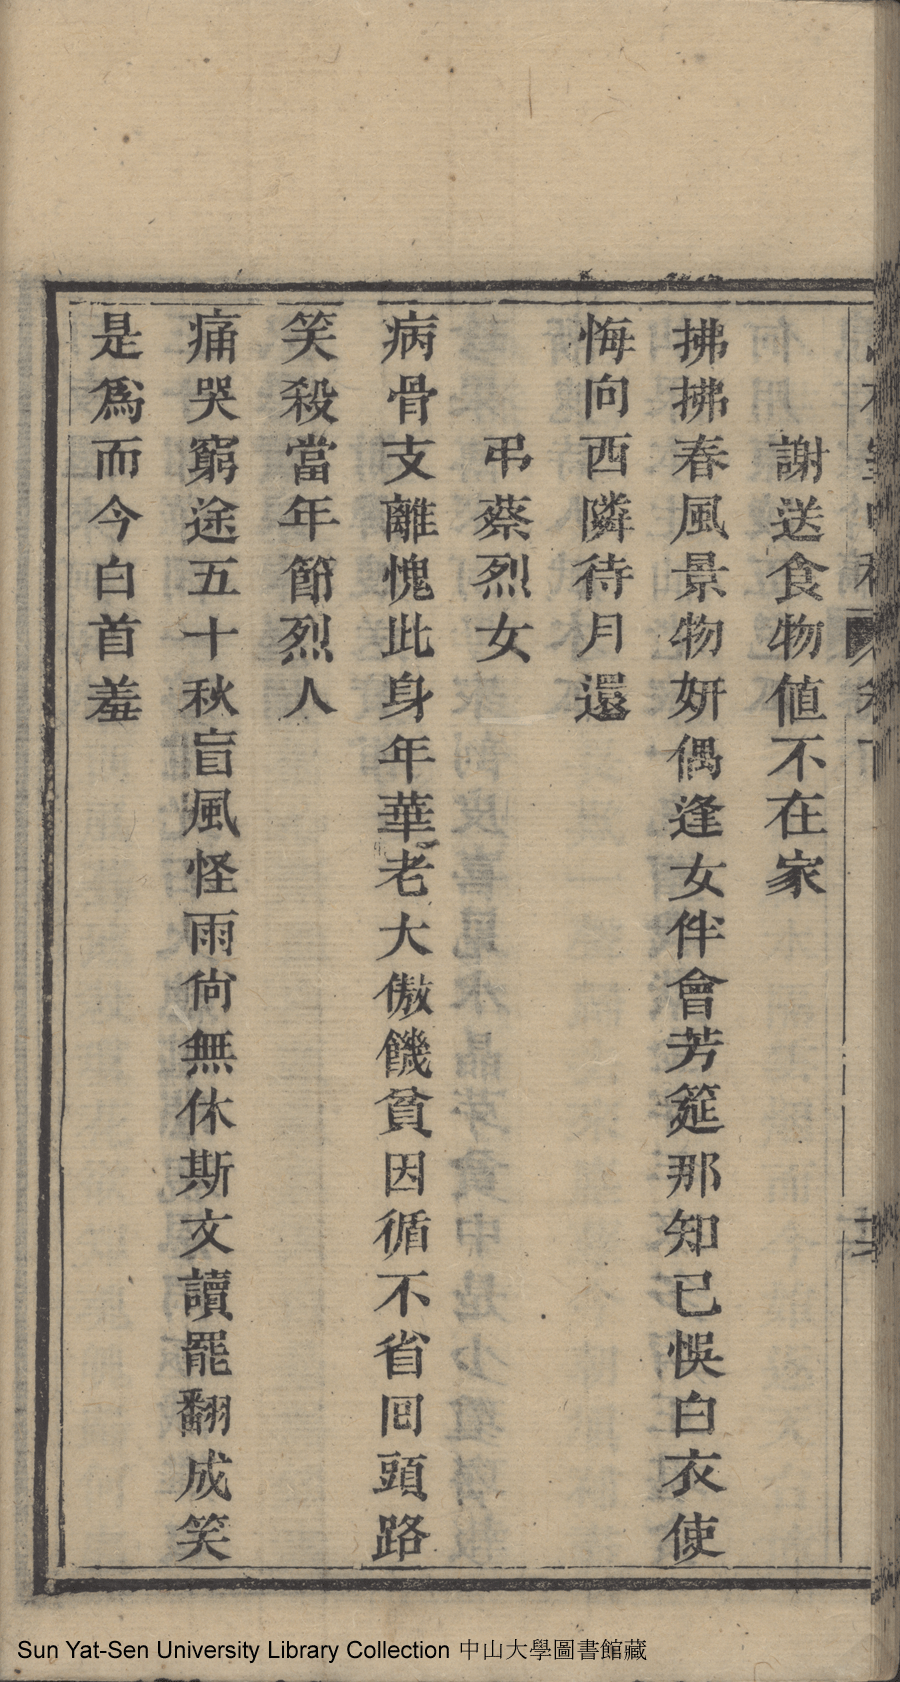 謝送食物値不在家
拂拂春風景物妍偶逢女伴會芳筵那知已悞白衣使
悔向西隣待月還
弔蔡烈女
病骨支離愧此身年華老大傲饑貧因循不省囘頭路
笑殺當年節烈人
痛哭窮途五十秋盲風怪雨尙無休斯文讀罷翻成笑
是爲而今白首羞
Sun Yat-Sen University Library Collection 中山大學圖書館藏